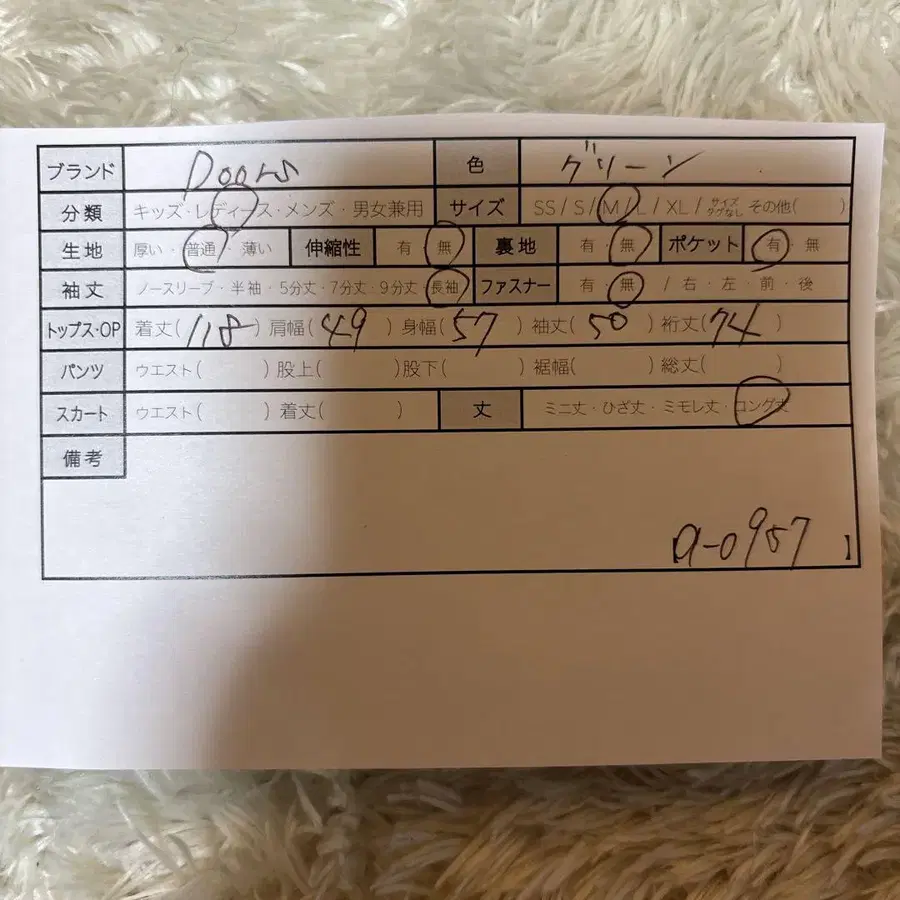 ブランド Doors 色 グリーン
分類 キッズ・レディース・メンズ・男女兼用 サイズ SS / S / M / L / XL / サイズタグなし その他( )
生地 厚い・普通・薄い 伸縮性 有・無 裏地 有・無 ポケット 有・無
袖丈 ノースリーブ・半袖・5分丈・7分丈・9分丈・長袖 ファスナー 有・無 / 右・左・前・後
トップス・OP 着丈(118) 肩幅(49) 身幅(57) 袖丈(50) 裄丈(74)
パンツ ウエスト( ) 股上( ) 股下( ) 裾幅( ) 総丈( )
スカート ウエスト( ) 着丈( ) 丈 ミニ丈・ひざ丈・ミモレ丈・ロング丈
備考
【a-0957 】